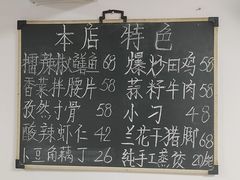 本店特色
擂辣椒鳝鱼 68 爆炒田鸡 58
香菜拌腰片 58 蒜籽牛肉 58
孜然寸骨 58 小刁 48
酸辣虾仁 42 兰花干猪脚 68
豆角藕丁 26 纯手工蒸饺 20/